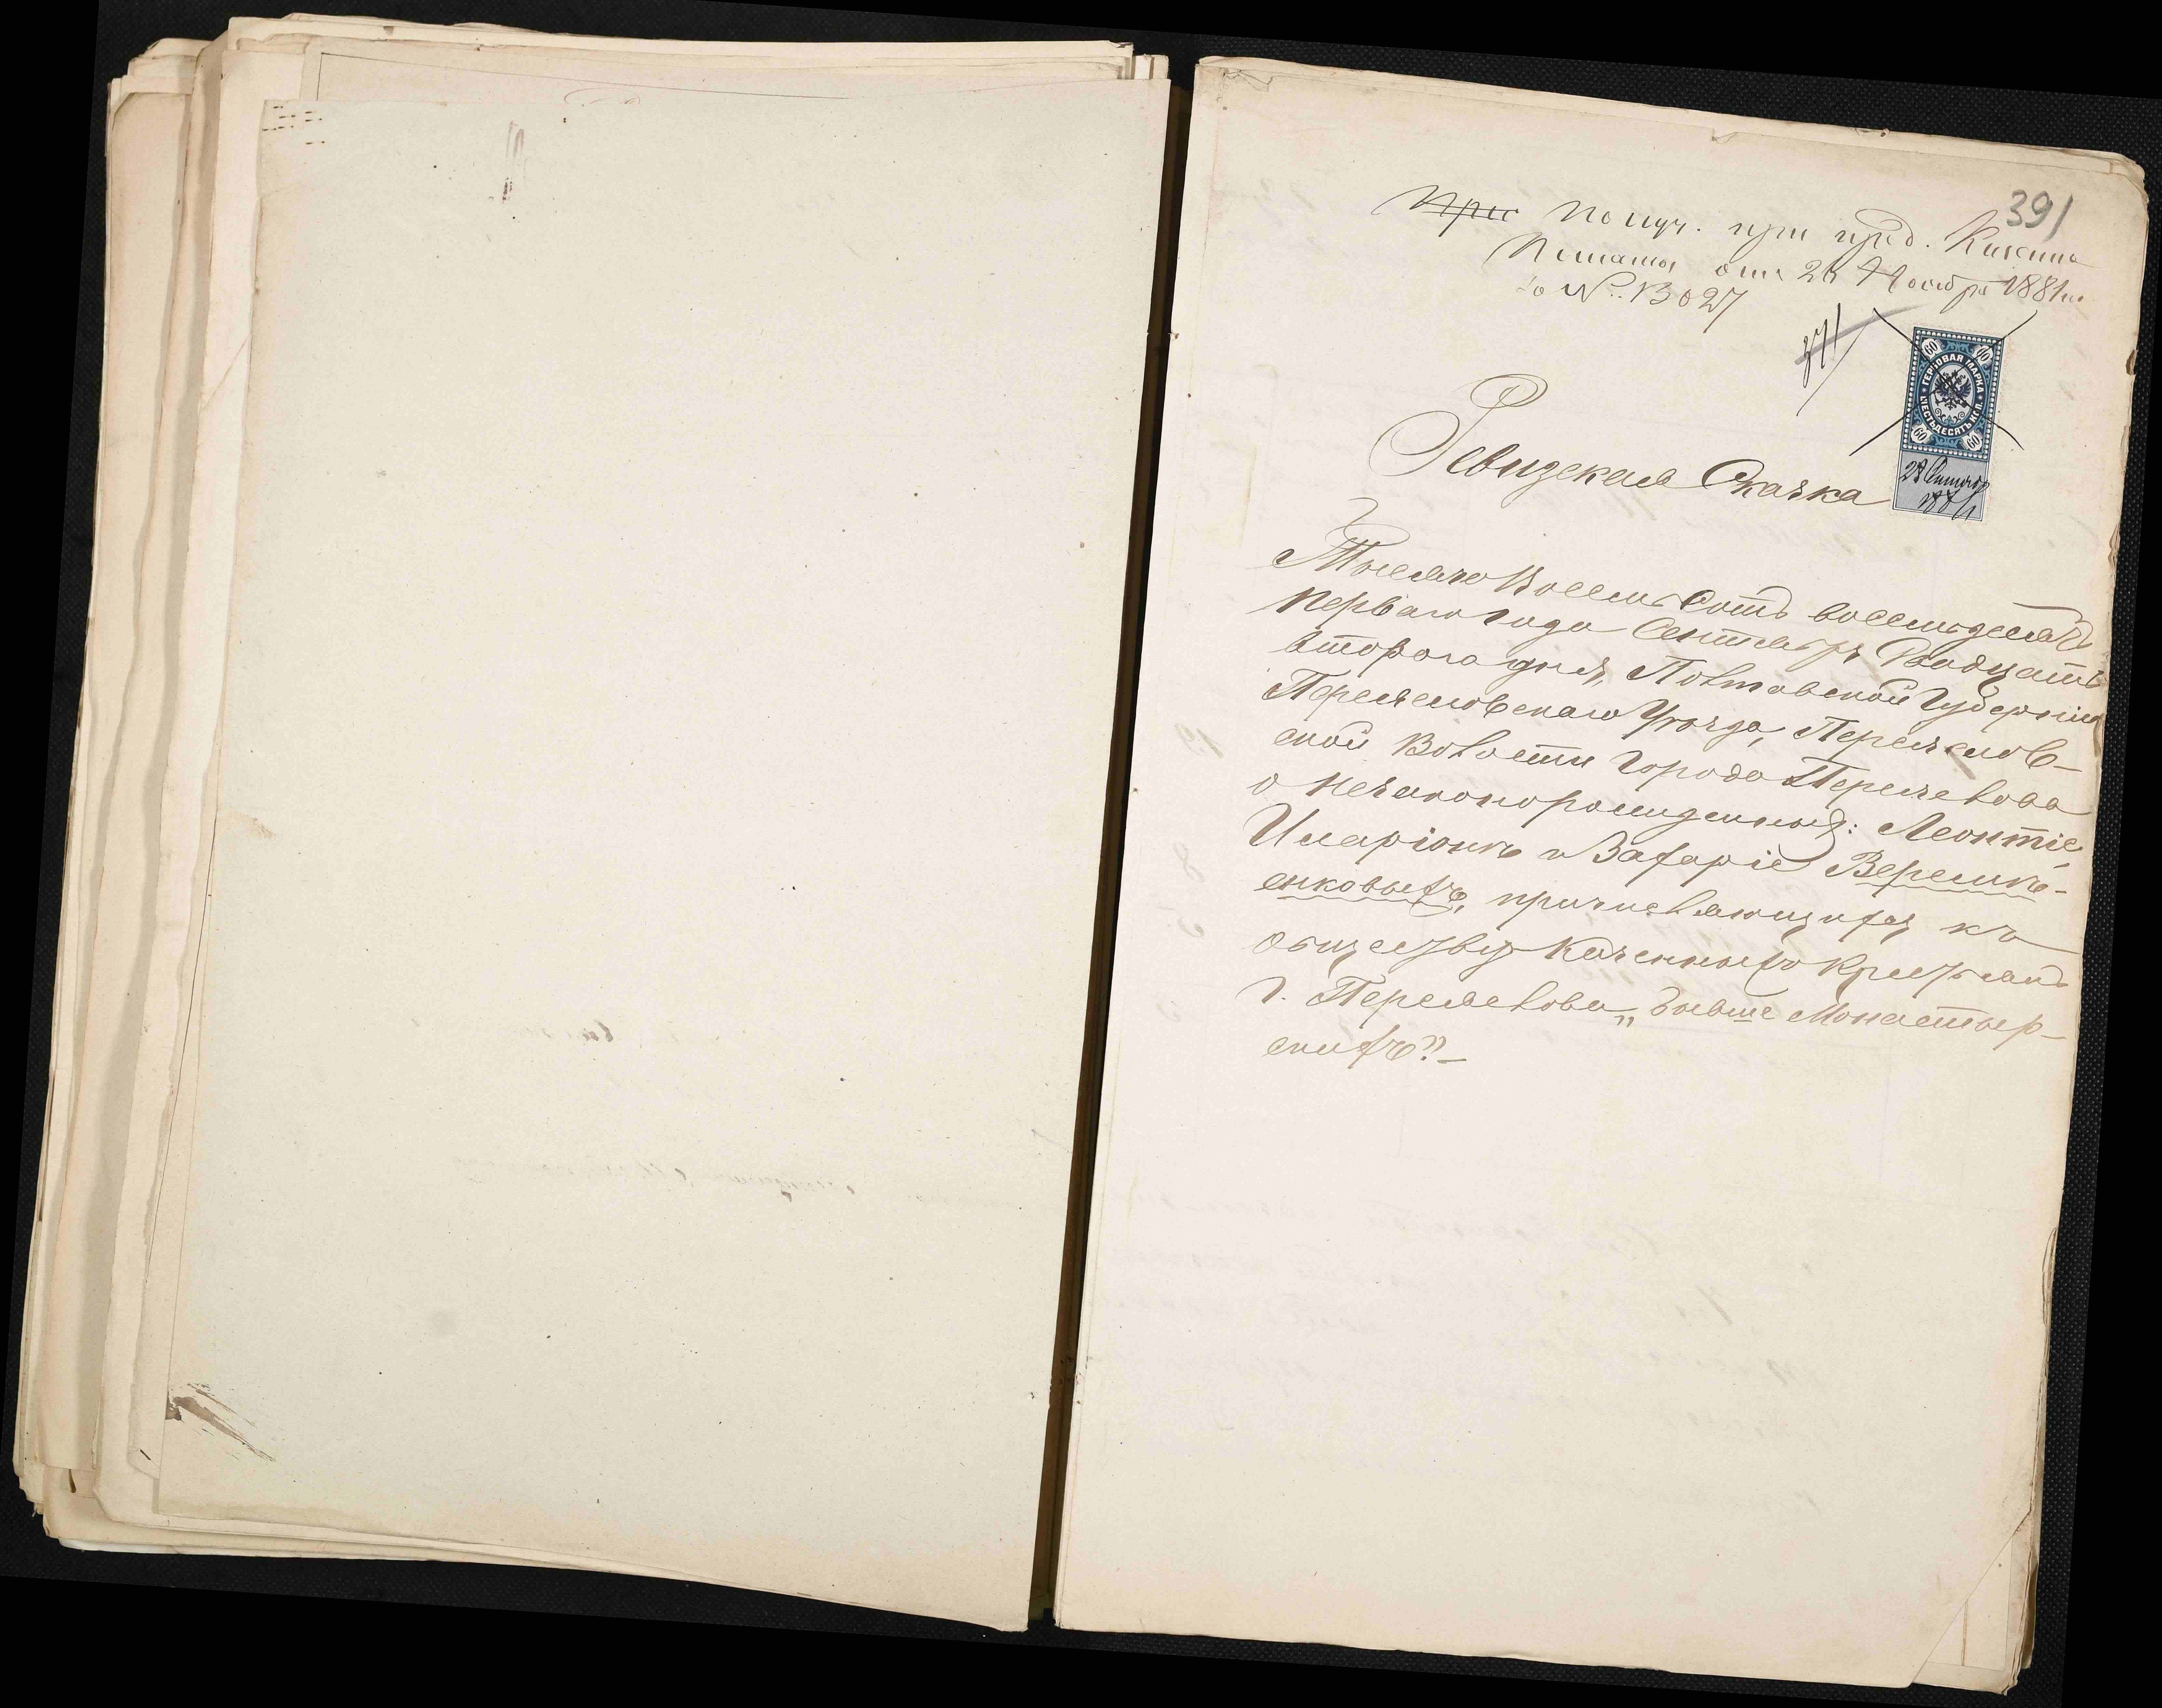 391
При Получ. при пред. Казен.
Палаты отъ 26 Ноября 1881 г.
за №. 13027
371
60 60
ГЕРБОВАЯ МАРКА
ШЕСТЬДЕСЯТЬ КОП.
60 60
Ревизская Сказка
22 Сентября
1881
Тысяча Восемь Сотъ восемьдесятъ
перваго года Сентября Двадцать
втораго дня, Полтавской Губерніи
Переясловскаго Уѣзда, Переяслов-
ской Волости города Переяслова
о незаконорожденныхъ: Леонтіе,
Иларіонѣ и Захаріе Верешкѣ-
енковыхъ, причисляющихся къ
обществу Казенныхъ Крестьянъ
г. Переяслова „бывше Монастыр-
скихъ"? –